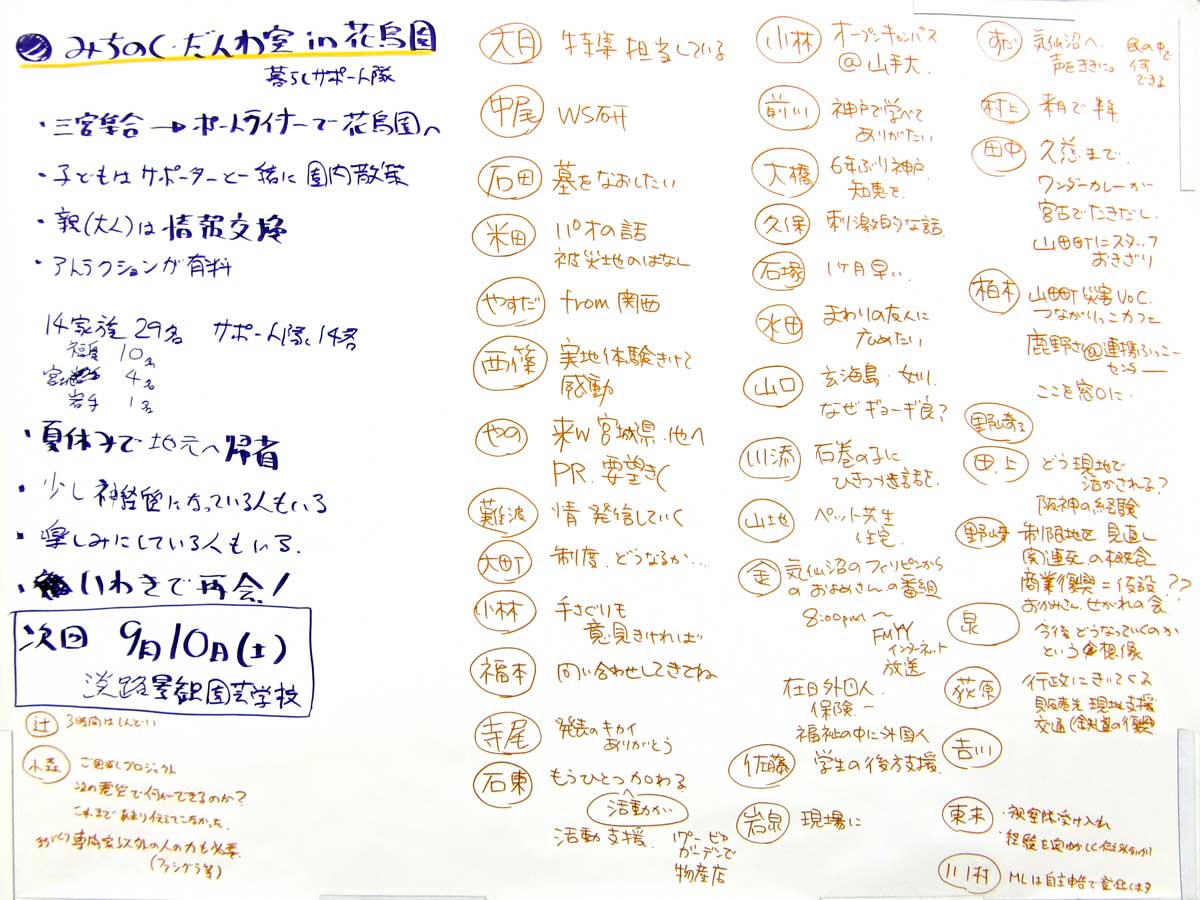 みちのく・だんわ室 in 花鳥園
暮らしサポート隊
・三宮集合→ポートライナーで花鳥園へ
・子どもはサポーターと一緒に園内散策
・親(大人)は情報交換
・アトラクションが有料
14家族 29名 サポート隊、14名
福島 10名
宮城 4名
岩手 1名
・夏休みで地元へ帰省
・少し神経質になっている人もいる
・楽しみにしている人もいる.
・いわきで再会!
次回 9月10日(土)
淡路景観園芸学校
辻 3時間はしんどい
小森 ご用聞きプロジェクト
次の震災で何ができるのか?
これまであまり伝えてこなかった.
専門家以外の人の力も必要.
(ファシグラ等)
大月 特集担当している
中尾 WS研
石田 墓をなおしたい
米田 パオの話
被災地のはなし
やすだ from 関西
西篠 実地体験きけて
感動
やの 来W 宮城県.他へ
PR.要望きく
難波 情発信していく
大町 制度.どうなるか…
小林 手さぐりも
意見きければ
福本 問い合わせしてきてね
寺尾 発表のキカイ
ありがとう
石東 もうひとつ加わる
活動が
活動支援.
ガーデンで
物産店
小林 オープンキャンパス
@山手大.
前川 神戸で学べて
ありがたい
大橋 6年ぶり神戸.
知恵を.
久保 刺激的な話.
石塚 1ヶ月早い.
水田 まわりの友人に
広めたい
山口 玄海島・女川.
なぜギョーギ良?
川添 石巻の子に
ひきつづき話を.
山地 ペット共生
住宅.
金 気仙沼のフィリピンから
のおよめさんの番組
8:00pm〜
FMYY
インターネット
放送
在日外国人.
保険.ー
福祉の中に外国人
佐藤 学生の後方支援.
岩泉 現場に
すだ 気仙沼へ.
声をききに。
民の中で
何
できる
村上 来月で半年
田中 久慈まで.
ワンダーカレーが
宮古でたきだし.
山田町にスタッフ
おきざり
柏木 山田町災害VoC.
つながりっこカフェ
鹿野さん@連携ふっこー
センター
ここを窓口に.
野崎
田上 どう現地で
活かされる?
阪神の経験
野崎 制限地区 見直し
関連死の概念
商業復興=仮設??
おかみさん.せがれの会.
泉 今後どうなっていくのか
という想像
荻原 行政にぎてくる
販売先 現地支援
交通(鉄道の復興
吉川
東末 ・被害体受け入れ
川村 MLは自主申告で登録します